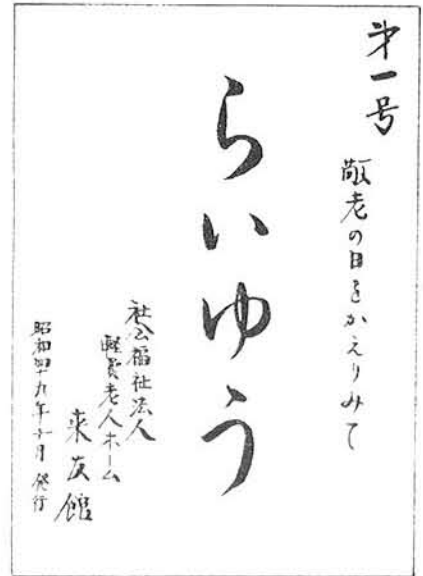 第一号
敬老の日をかえりみて
らいゆう
社会福祉法人
軽費老人ホーム
来友館
昭和四十九年十月発行